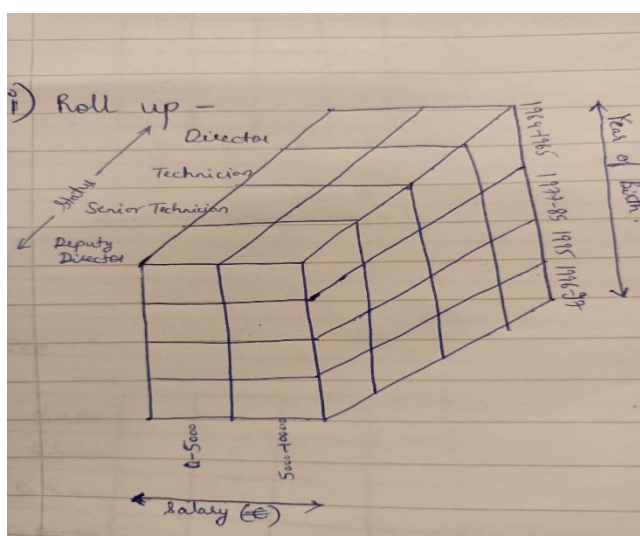 ii) Roll up -
Director
Technician
Senior Technician
Deputy
Director
Status
1964-1965
1977-85
1985
1996-97
Year of birth.
0-5000
5000-10000
Salary (€)